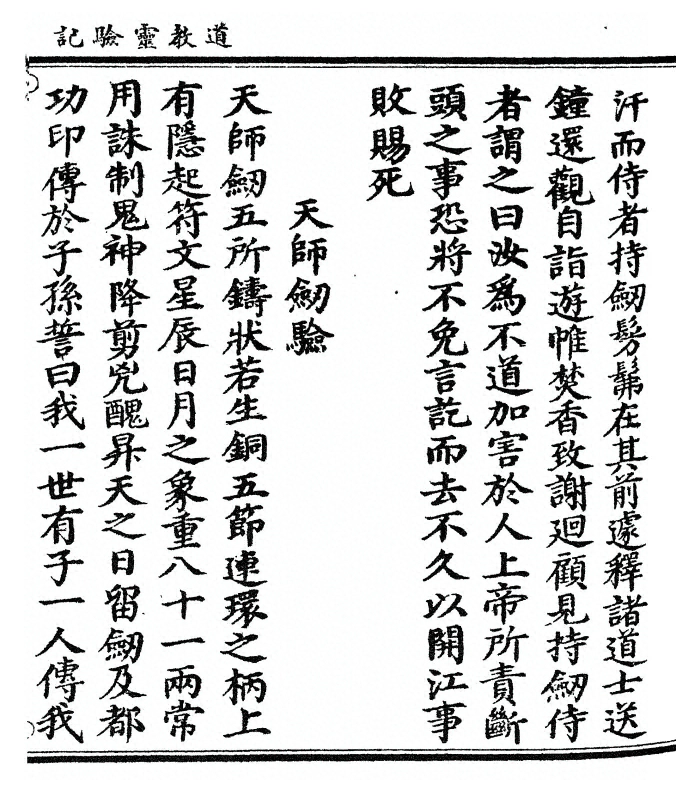 道教靈驗記
汗而侍者持劒髣髴在其前遽釋諸道士送
鐘還觀自詣遊帷焚香致謝廻顧見持劒侍
者謂之曰汝爲不道加害於人上帝所責斷
頭之事恐將不免言訖而去不久以開江事
敗賜死
天師劒驗
天師劒五所鑄狀若生銅五節連環之柄上
有隱起符文星辰日月之象重八十一兩常
用誅制鬼神降剪兇醜昇天之日留劒及都
功印傳於子孫誓曰我一世有子一人傳我